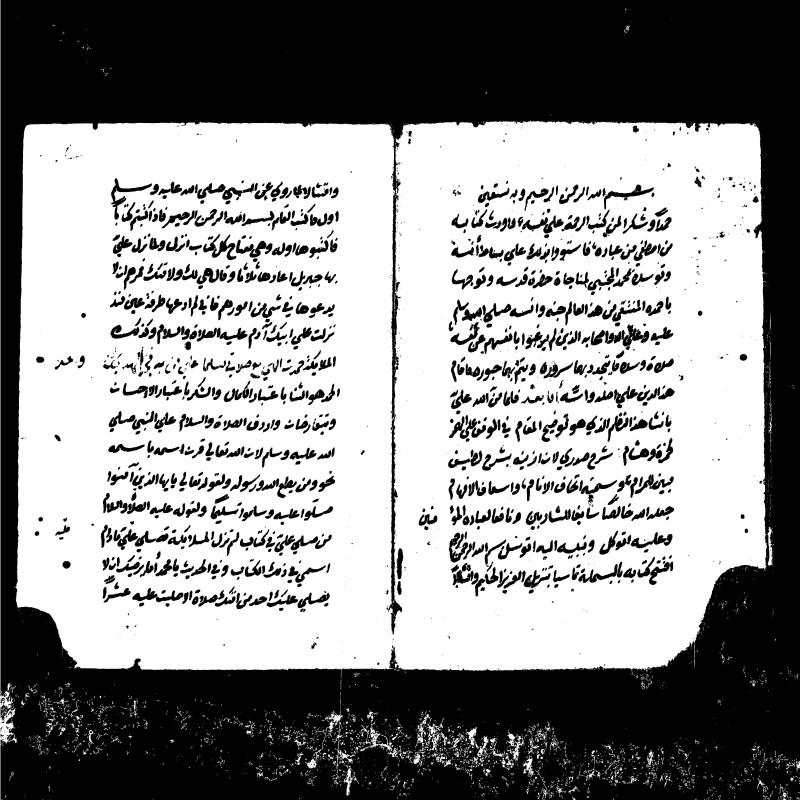 بسم الله الرحمن الرحيم وبه نستعين
حمدا وشكرا لمن كتب الرحمة علي نفسه واورث كتابه
من اصطفي من عباده فاستووا بذلك علي بساط أنسه
وتوسده محمد المجتبي لمناجاة حضرة قدسه وتوجها
باحمد المنتقي من هذا العالم جنه وانسه صلي الله وسلم
عليه وعلي اله واصحابه الذين لم يرغبوا بانفسهم عن نفسه
صلاة وسلاما يتجدد بهما سروره ويتم بهما حبوره ما قام
هذا الدين علي اصله واسه أما بعد فلما من الله علي
بانشا هذا النظم الذي هو توضيح المقام في الوقف علي الهمز
لحمزة وهشام شرح صدري لان ازينه بشرح لطيف
مبين للمرام وسميته اتحاف الانام واسعاف الافهام
جعله الله خالصا سائغا للشاربين ونافعا لعباده المؤ
منين
وعليه اتوكل وبنبيه اليه اتوسل بسم الله الرحمن الرحيم
افتتح كتابه بالبسملة تاسيا بتنزيل العزيز الحكيم
واقتفا لما روي عن النبي صلي الله عليه وسلم
اول ما كتب القلم بسم الله الرحمن الرحيم فاذا كتبتم كتابا
فاكتبوها اوله وهي مفتاح كل كتاب انزل ولما نزل علي
بها جبريل اعادها ثلاثا وقال هي لك ولامتك فمرهم ان لا
يدعوها في شي من امورهم فاني لم ادعها طرفة عين منذ
نزلت علي ابيك آدم عليه الصلاة والسلام وكذلك
الملايكة
الحمد هو الثنا باعتبار الكمال والشكر باعتبار الاحسان
وعد
ويتقارضان واردف الصلاة والسلام علي النبي صلي
الله عليه وسلم لان الله تعالي قرن اسمه باسمه
نحو ومن يطع الله ورسوله ولقوله تعالي يا ايها الذين آمنوا
صلوا عليه وسلموا تسليما ولقوله عليه الصلاة والسلام
من صلي علي في كتاب لم تزل الملايكة تصلي عليه ما دام
اسمي في ذلك الكتاب وفي الحديث يا محمد أما يرضيك ان لا
يصلي عليك احد من امتك صلاة الا صليت عليه عشرا